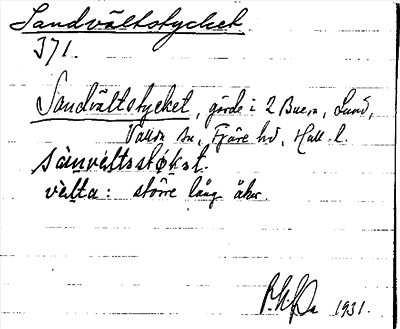 Sandvältstycket
I71.
Sandvältstycket, gärde i 2 Buera, Lund,
Valda sn, Fjäre hd, Hall. l.
sànvɛltəsstøkət.
vɛlta: större lång åker.
1931.